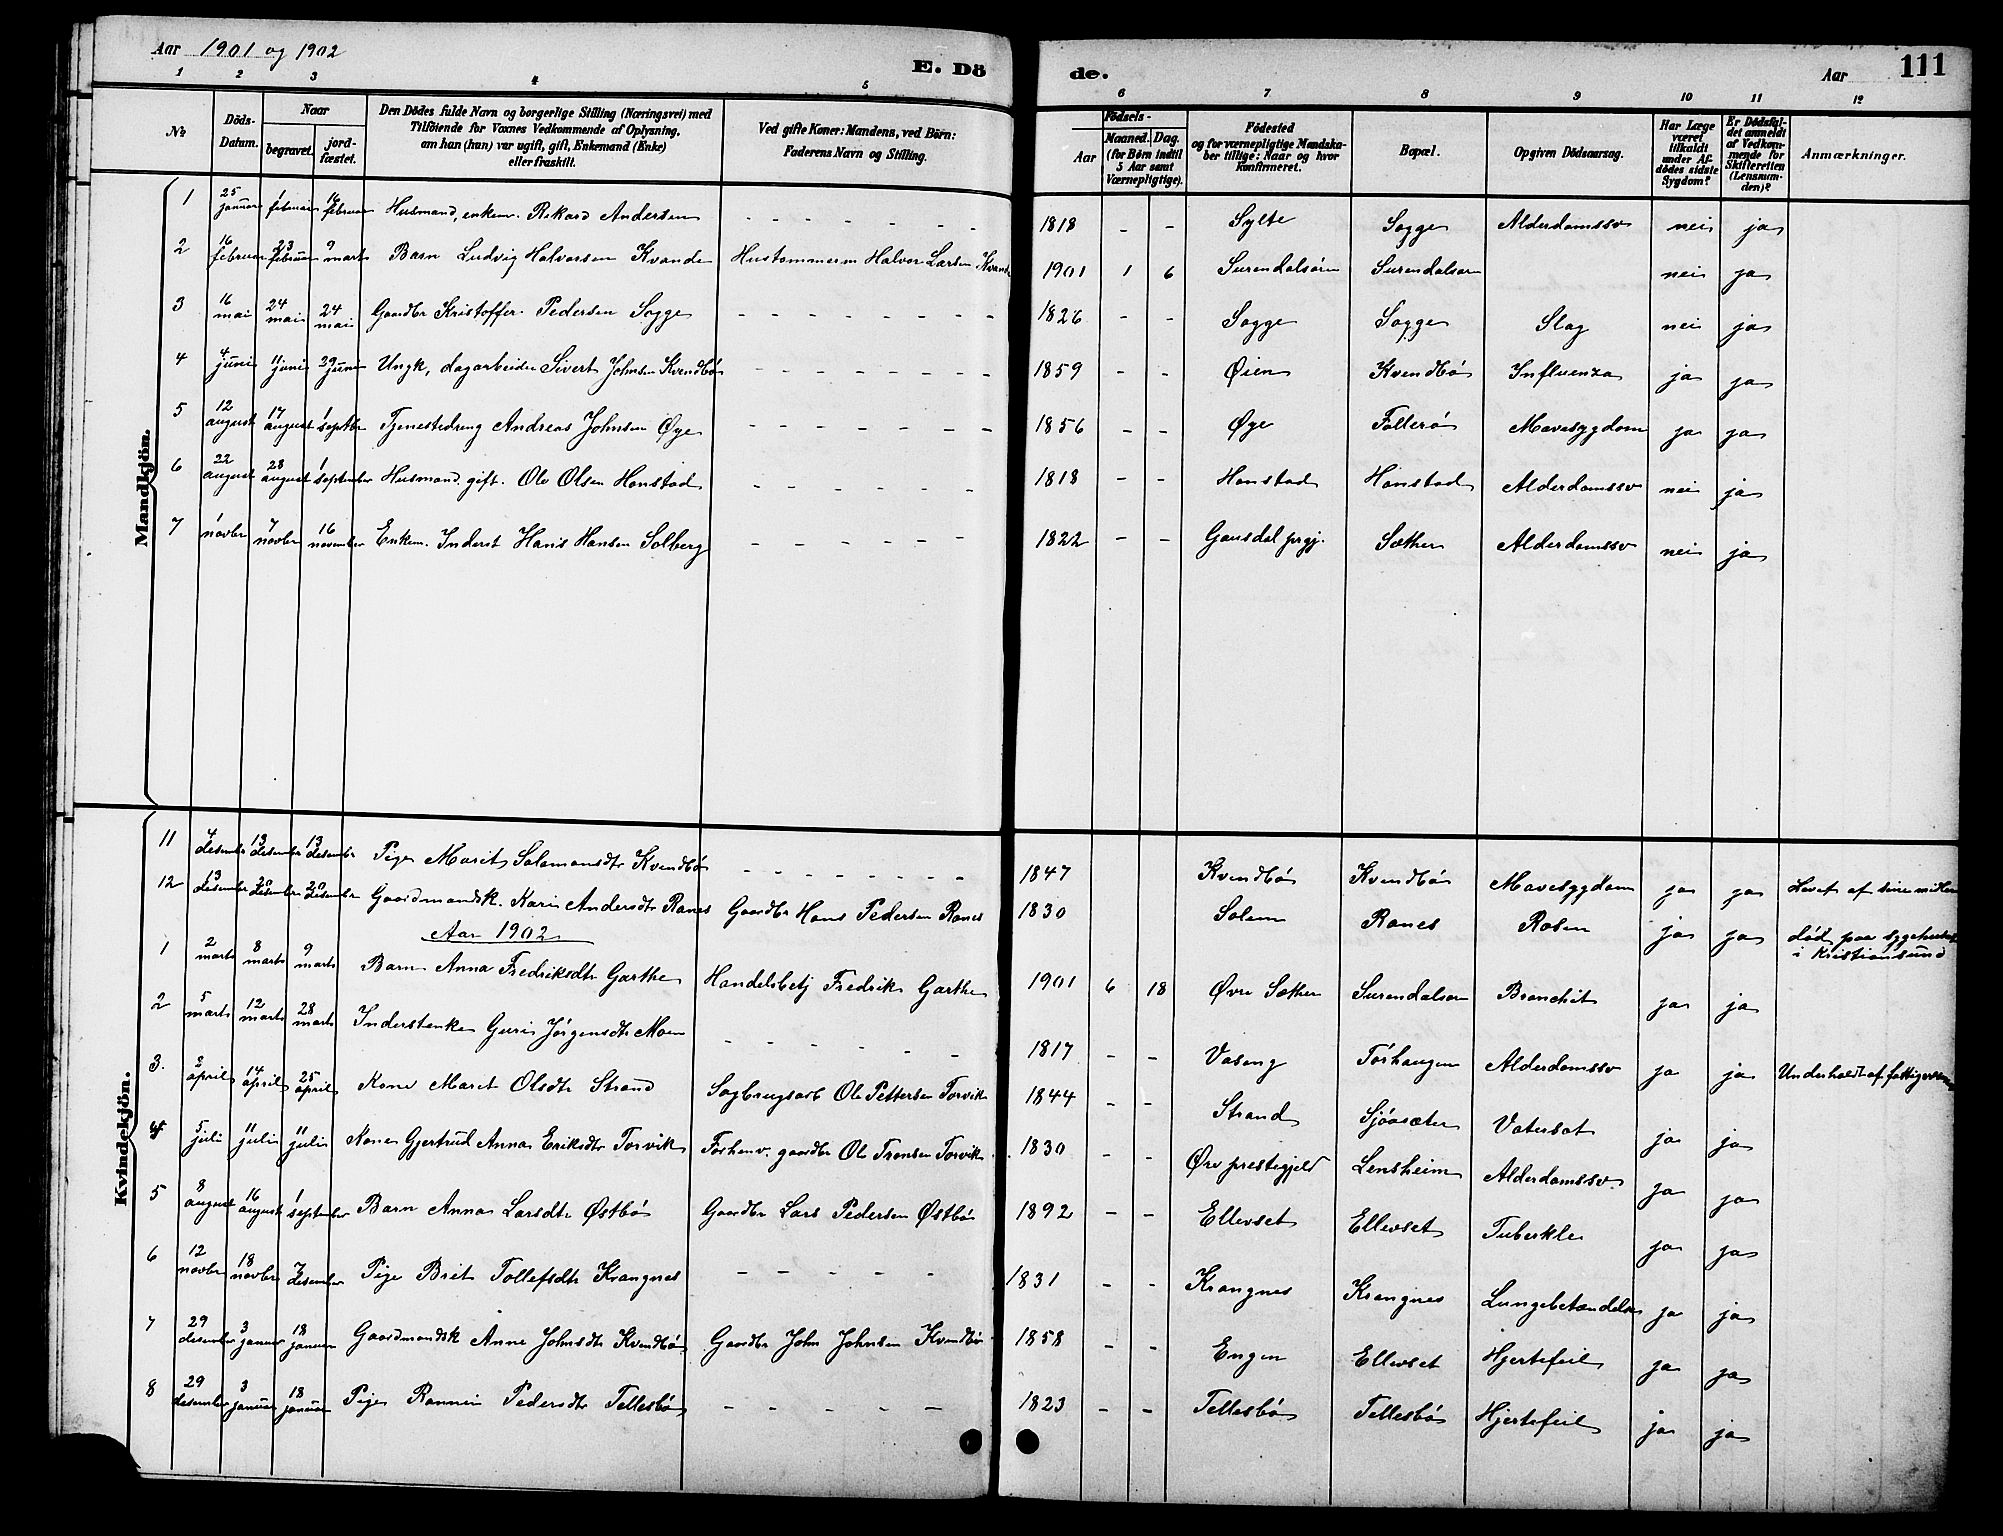 Aar 1901 og 1902
E. Dö
de.
Aar
111
1 2 3 4 5 6 7 8 9 10 11 12
No
Döds-Datum.
Naar
begravet.
jordfæstet.
Den Dödes fulde Navn og borgerlige Stilling (Næringsvei) med
Tilföiende for Voxnes Vedkommende af Oplysning,
om han (hun) var ugift, gift, Enkemand (Enke)
eller fraskilt.
Ved gifte Koner: Mandens, ved Börn:
Faderens Navn og Stilling.
Födsels-
Aar
Maaned. Dag.
(for Börn indtil
5 Aar samt
Værnepligtige).
Födested
og for værnepligtige Mandska-
ber tillige: Naar og hvor
konfirmeret.
Bopæl.
Opgiven Dödsaarsag.
Har Læge
været
tilkaldt
under Af-
dödes sidste
Sygdom?
Er Dödsfal-
det anmeldt
af Vedkom-
mende for
Skifteretten
(Lensman-
den)?
Anmærkninger.
Mandkjön.
1 25 januar februar 16 februar Husmand, enkem. Rikard Andersen - - - - - - 1818 - - Sylte Sogge Alderdomssv nei ja
2 16 februar 23 februar 9 marts Barn Ludvig Halvorsen Kvande Hustømmerm Halvor Larsen Kvande 1901 1 6 Surendalsøren Surendalsøren nei ja
3 16 mai 24 mai 24 mai Gaardbr Kristoffer Pedersen Sogge - - - - - - - - 1826 - - Sogge Sogge Slag nei ja
4 4 juni 11 juni 29 juni Ungk, dagarbeider Sivert Johnsen Kvendbø - - - - - - - 1859 - - Øien Kvendbø Influenza ja ja
5 12 august 17 august 1 septbr Tjenestedreng Andreas Johnsen Øye - - - - - - - 1856 - - Øye Follerø Mavesygdom ja ja
6 22 august 28 august 1 september Husmand gift. Ole Olsen Honstad - - - - - - 1818 - - Honstad Honstad Alderdomssv nei ja
7 1 novbr 7 novbr 16 november Enkem. Inderst Hans Hansen Solberg - - - - - - 1822 - - Gausdal prgj. Sæther Alderdomssv nei ja
Kvindekjön.
11 4 desembr 13 desembr 13 desembr Pige Marit Salamonsdtr Kvendbø - - - - - - - 1847 Kvendbø Kvendbø Mavesygdom ja ja Levet af sine midler
12 13 desembr 20 desembr 20 desembr Gaardmandsk. Kari Andersdtr Ranes Gaardbr Hans Pedersen Ranes 1830 Solem Ranes Rosen ja ja død paa sygehuset
i Kristiansund
Aar 1902
1 2 marts 8 marts 9 marts Barn Anna Fredriksdtr Garthe Handelsbetj Fredrik Garthe 1901 6 18 Øvre Sæther Surendalsøren Bronchit ja ja
2 5 marts 12 marts 28 marts Inderstenke Guri Jørgensdtr Moen - - - - - - 1817 - - Vaseng Torhaugen Alderdomssv ja ja Underholdt af fattigvesenet
3. 2 april 14 april 25 april Kone Marit Olsdtr Strand Sagbrugsarb Ole Pettersen Torvik 1844 - - Strand Sjøosæter Vatersot ja ja
4 5 juli 11 juli 11 juli Kone Gjertrud Anna Eriksdtr Torvik Forhenv. gaardbr Ole Tronsen Torvik 1830 - - Øre prestegjeld Lensheim Alderdomssv ja ja
5 8 august 16 august 1 september Barn Anna Larsdtr Østbø Gaardbr Lars Pedersen Østbø 1892 - - Ellevset Ellevset Tuberkler ja ja
6 12 novbr 18 novbr 7 desember Pige Brit Tollefsdtr Krangnes - - - - - 1831 - - Krangnes Krangnes Lungebetændelse ja ja
7 29 desember 3 januar 18 januar Gaardmandsk Anne Johnsdtr Kvendbø Gaardbr John Johnsen Kvendbø 1858 - - Engen Ellevset Hjertefeil ja ja
8 29 desember 3 januar 18 januar Pige Rannei Pedersdtr Tellesbø - - - - - 1823 - - Tellesbø Tellesbø Hjertefeil ja ja